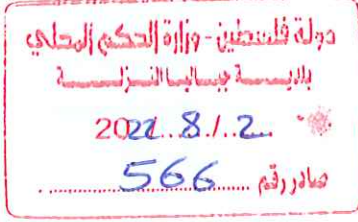 دولة فلسطين - وزارة الحكم المحلي
بلديــة جباليا النـزلــة
2022../..8../..2..
صادر رقم ....566....